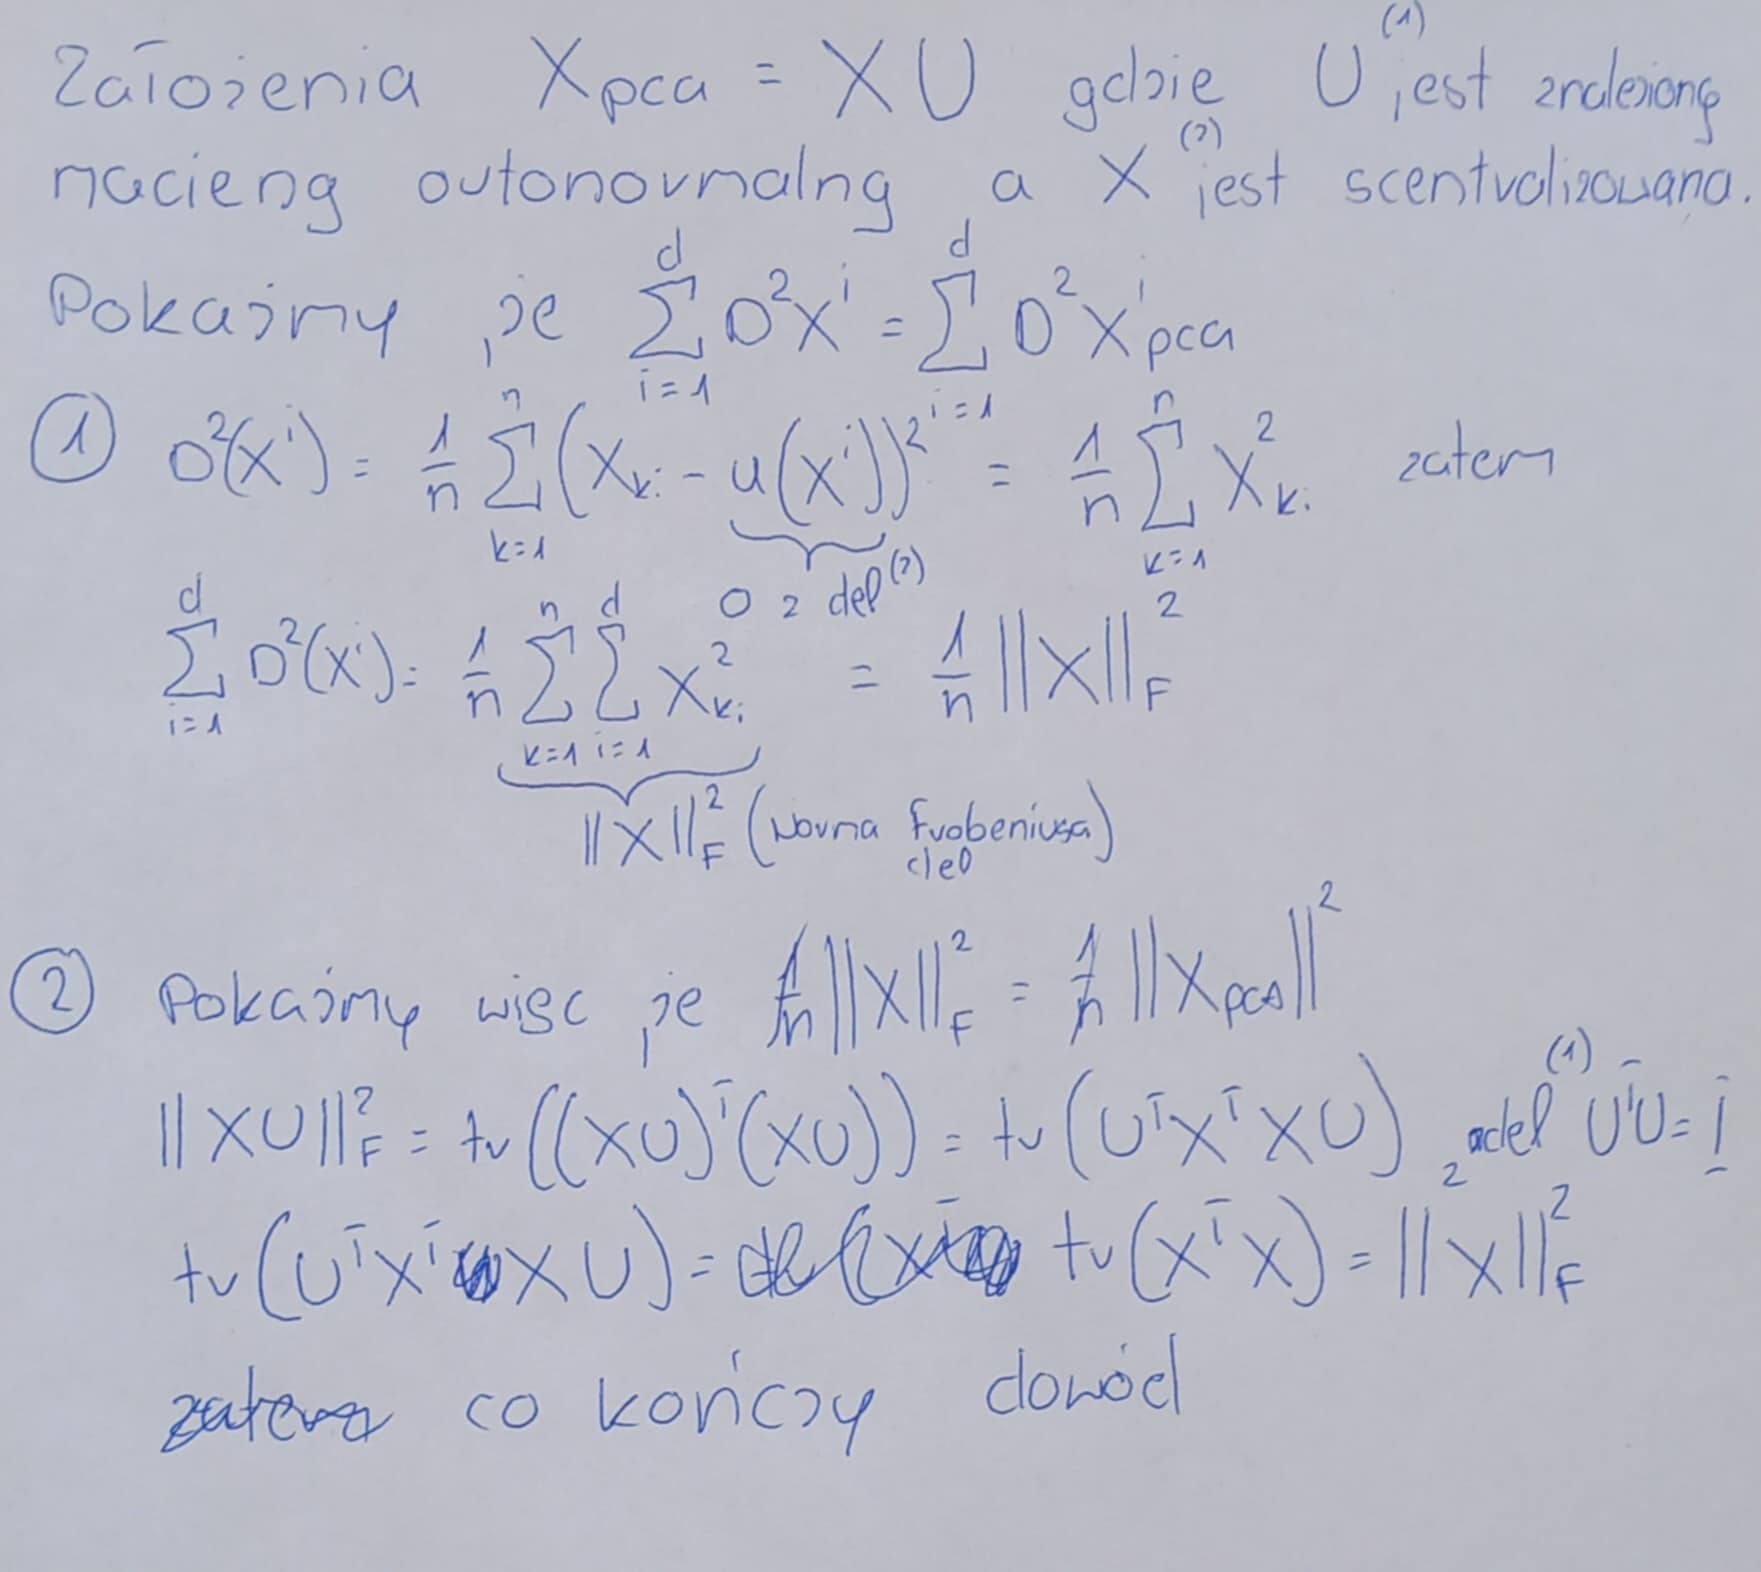 Założenia X_pca = XU gdzie U^(1) jest znalezioną
macierzą ortonormalną, a X^(2) jest scentralizowana.
Pokażmy, że \sum_{i=1}^{d} D^2 X^i = \sum_{i=1}^{d} D^2 X^i_{pca}
① D^2(X^i) = \frac{1}{n} \sum_{k=1}^{n} (X_{ki} - u(X^i))^2 = \frac{1}{n} \sum_{k=1}^{n} X_{ki}^2 zatem
0 z def^(2)
\sum_{i=1}^{d} D^2(X^i) = \frac{1}{n} \sum_{k=1}^{n} \sum_{i=1}^{d} X_{ki}^2 = \frac{1}{n} ||X||_F^2
||X||_F^2 (Norma Frobeniusa)
def
② Pokażmy więc, że \frac{1}{n} ||X||_F^2 = \frac{1}{n} ||X_{pca}||^2
||XU||_F^2 = tr((XU)^T(XU)) = tr(U^T X^T X U), z def^(1) U^T U = I
tr(U^T X^T X U) = tr(X^T X) = ||X||_F^2
zatem co kończy dowód